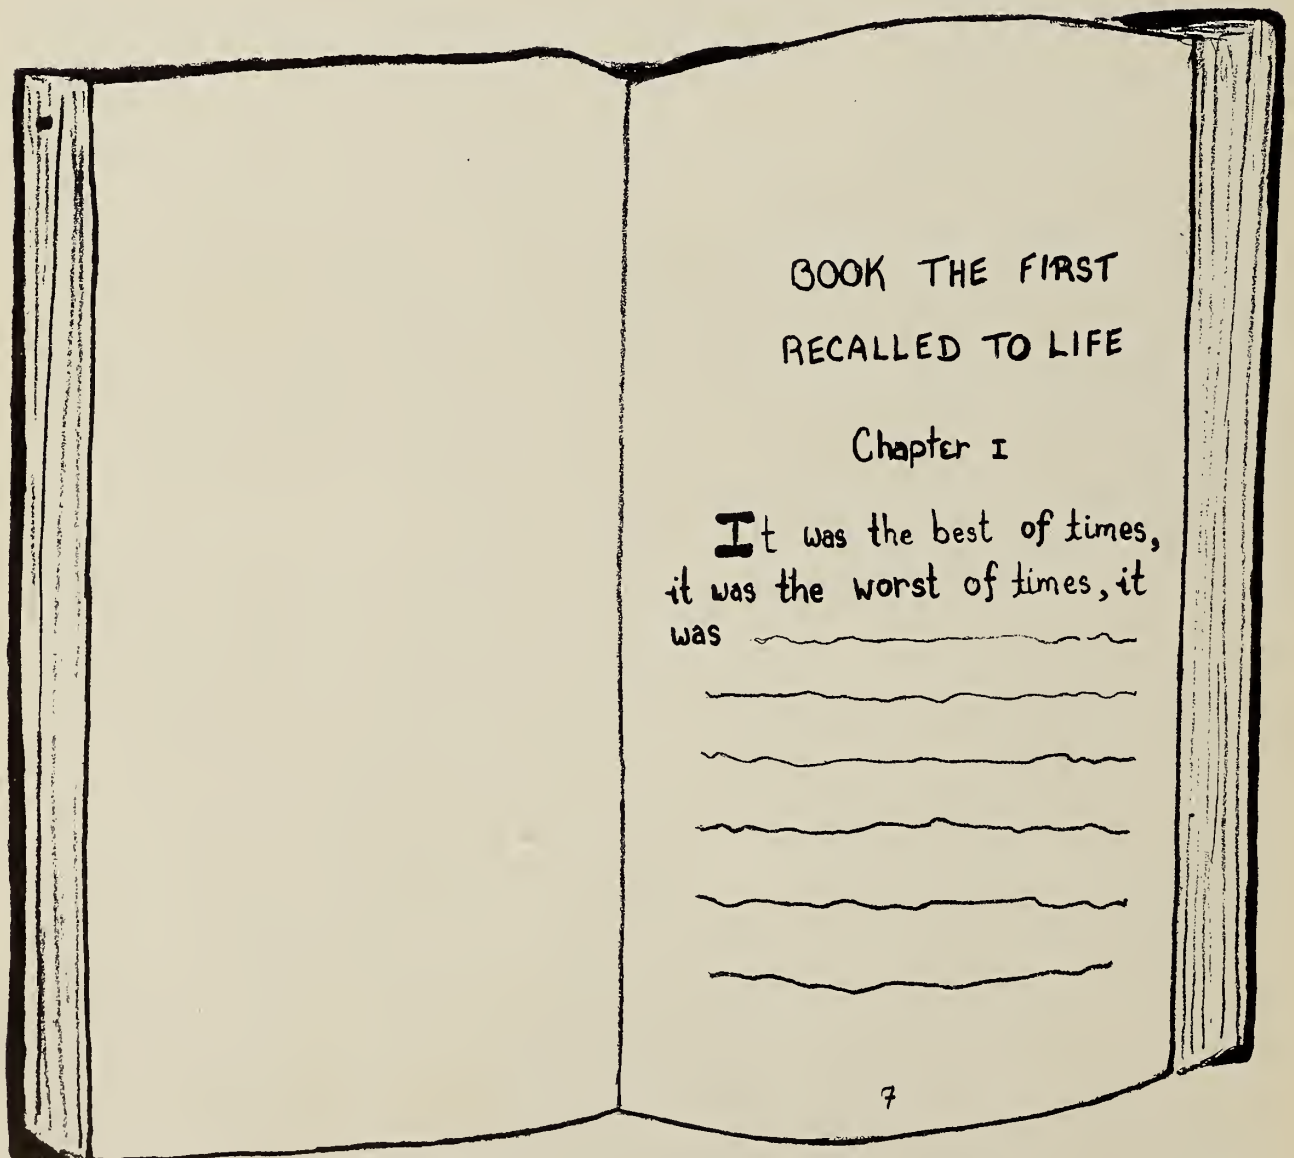 BOOK THE FIRST
RECALLED TO LIFE
Chapter I
It was the best of times,
it was the worst of times, it
was
7